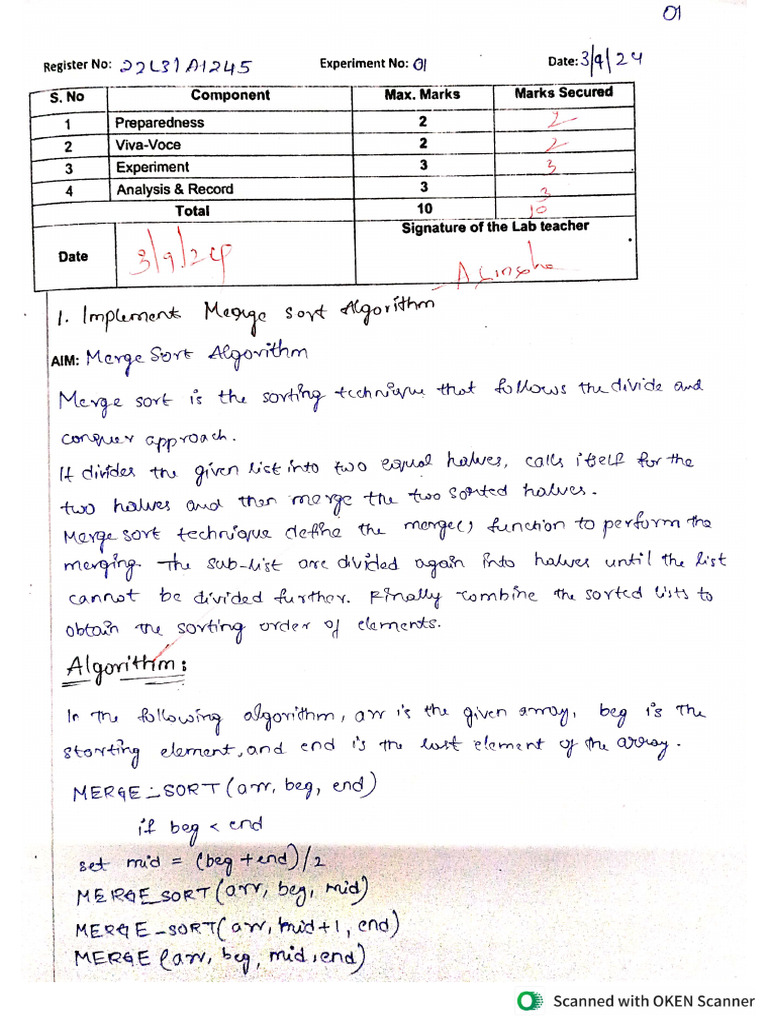 01
Register No: 22L31A1245 Experiment No: 01 Date: 3/9/24
S. No Component Max. Marks Marks Secured
1 Preparedness 2 2
2 Viva-Voce 2 2
3 Experiment 3 3
4 Analysis & Record 3 3
Total 10 10
Signature of the Lab teacher
Date 3/9/24
1. Implement Merge sort Algorithm
AIM: Merge Sort Algorithm
Merge sort is the sorting technique that follows the divide and
conquer approach.
It divides the given list into two equal halves, calls itself for the
two halves and then merge the two sorted halves.
Merge sort technique define the merge() function to perform the
merging. The sub-list are divided again into halves until the list
cannot be divided further. Finally combine the sorted lists to
obtain the sorting order of elements.
Algorithm:
In the following algorithm, arr is the given array, beg is the
starting element, and end is the last element of the array.
MERGE_SORT(arr, beg, end)
if beg < end
set mid = (beg + end)/2
MERGE_SORT(arr, beg, mid)
MERGE-SORT(arr, mid+1, end)
MERGE (arr, beg, mid, end)
Scanned with OKEN Scanner